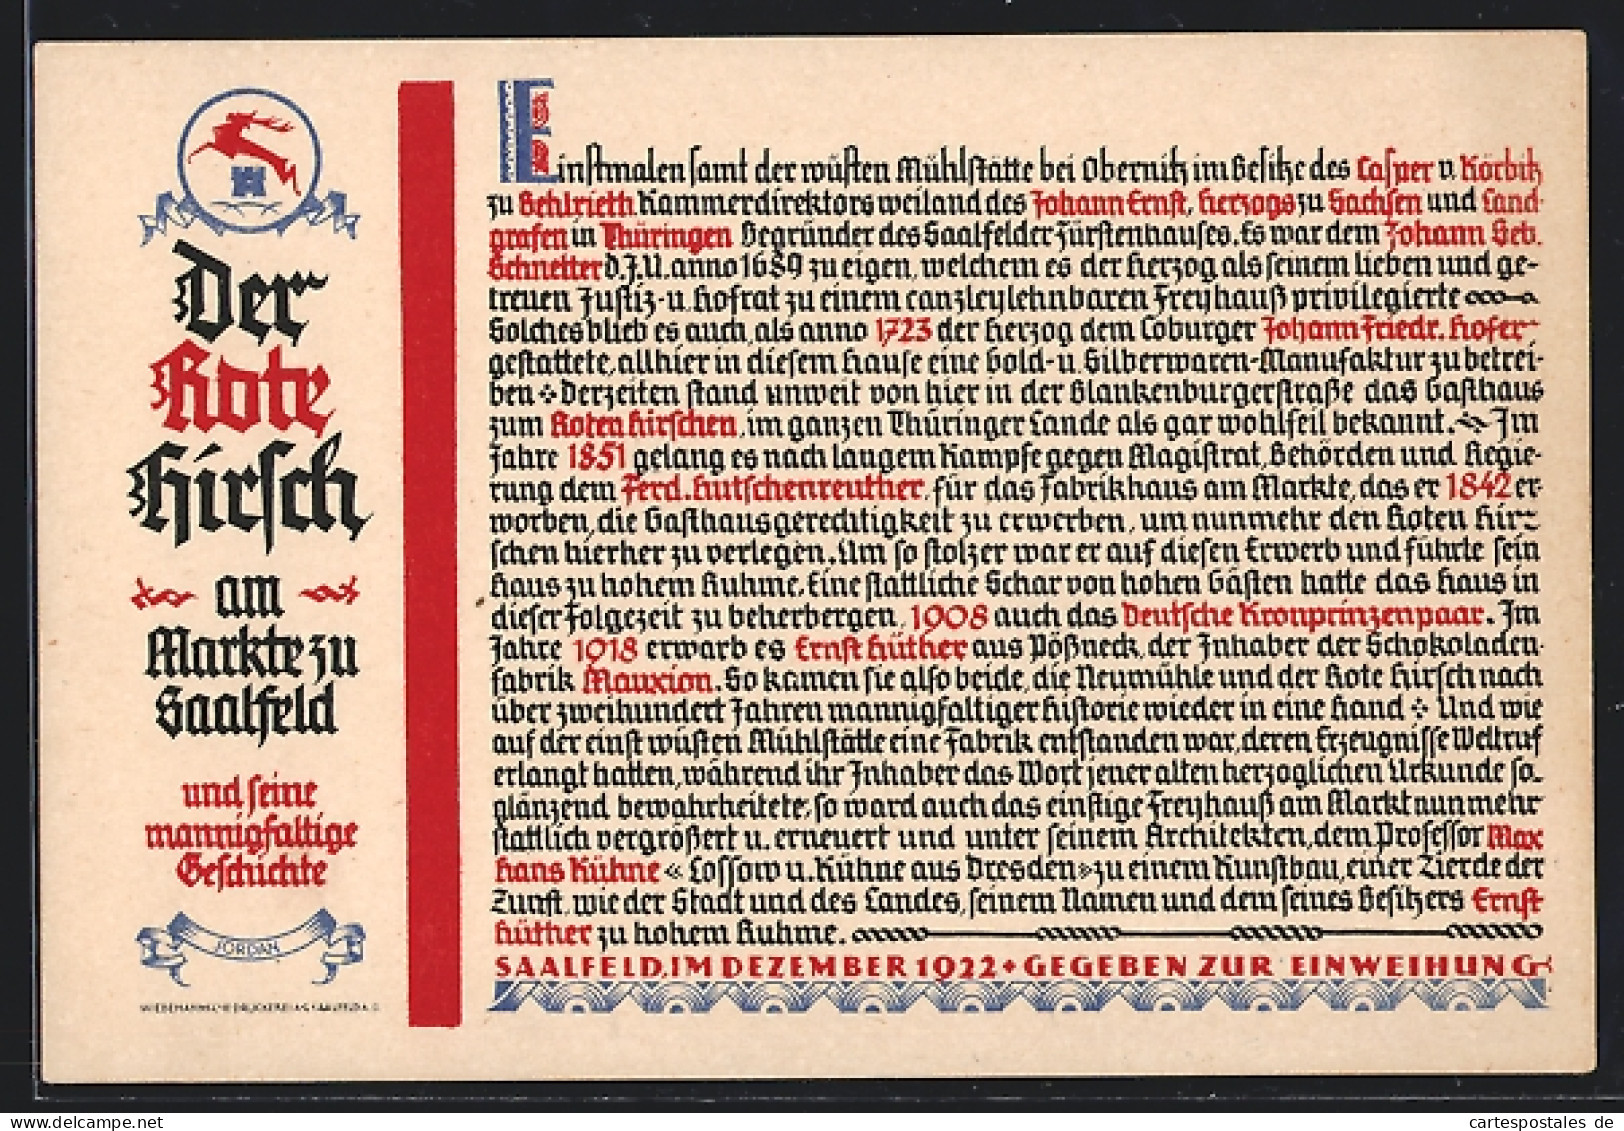 Der
Rote
Hirsch
am
Markte zu
Saalfeld
und seine
mannigfaltige
Geschichte
JORDAN
Einstmalen samt der wüsten Mühlstätte bei Obernitz im Besitze des Casper v. Körbitz
zu Gehlrieth Kammerdirektors weiland des Johann Ernst, Herzogs zu Sachsen und Land-
grafen in Thüringen Begründer des Saalfelder Fürstenhauses. Es war dem Johann Seb.
Schnetter d.J.U. anno 1689 zu eigen, welchem es der Herzog als seinem lieben und ge-
treuen Justiz- u. Hofrat zu einem canzleylehnbaren Freyhauß privilegierte
Solches blieb es auch, als anno 1723 der Herzog dem Coburger Johann Friedr. Hofer
gestattete, allhier in diesem Hause eine Gold- u. Silberwaren-Manufaktur zu betrei-
ben Derzeiten stand unweit von hier in der Blankenburgerstraße das Gasthaus
zum Roten Hirschen, im ganzen Thüringer Lande als gar wohlfeil bekannt. Im
Jahre 1851 gelang es nach langem Kampfe gegen Magistrat, Behörden und Regie-
rung dem Ferd. Hutschenreuther, für das Fabrikhaus am Markte, das er 1842 er-
worben, die Gasthausgerechtigkeit zu erwerben, um nunmehr den Roten Hir-
schen hierher zu verlegen. Um so stolzer war er auf diesen Erwerb und führte sein
Haus zu hohem Ruhme. Eine stattliche Schar von hohen Gästen hatte das Haus in
dieser Folgezeit zu beherbergen, 1908 auch das Deutsche Kronprinzenpaar. Im
Jahre 1918 erwarb es Ernst Hüther aus Pößneck, der Inhaber der Schokoladen-
fabrik Mauxion. So kamen sie also beide, die Neumühle und der Rote Hirsch nach
über zweihundert Jahren mannigfaltiger Historie wieder in eine Hand Und wie
auf der einst wüsten Mühlstätte eine Fabrik entstanden war, deren Erzeugnisse Weltruf
erlangt hatten, während ihr Inhaber das Wort jener alten herzoglichen Urkunde so
glänzend bewahrheitete, so ward auch das einstige Freyhauß am Markt nunmehr
stattlich vergrößert u. erneuert und unter seinem Architekten, dem Professor Max
Hans Kühne « Lossow u. Kühne aus Dresden » zu einem Kunstbau, einer Zierde der
Zunft, wie der Stadt und des Landes, seinem Namen und dem seines Besitzers Ernst
Hüther zu hohem Ruhme.
SAALFELD, IM DEZEMBER 1922 + GEGEBEN ZUR EINWEIHUNG
www.delcampe.net
cartespostales de